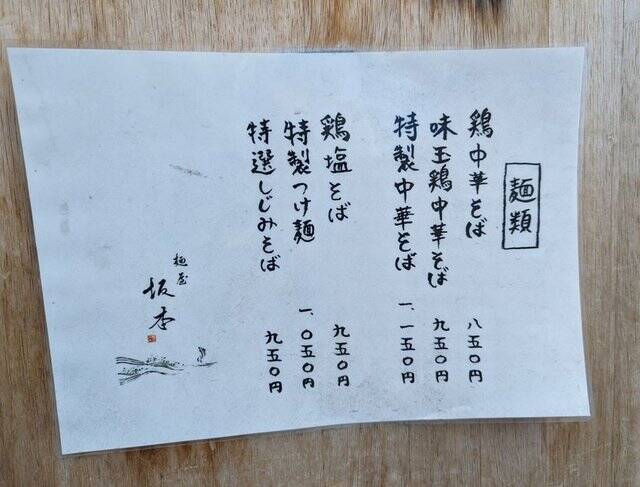 麺類
鶏中華そば 八五〇円
味玉鶏中華そば 九五〇円
特製中華そば 一、一五〇円
鶏塩そば 九五〇円
特製つけ麺 一、〇五〇円
特選しじみそば 九五〇円
麺屋
坂本